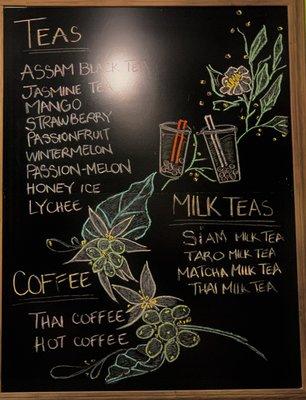 TEAS
ASSAM BLACK TEA
JASMINE TEA
MANGO
STRAWBERRY
PASSIONFRUIT
WINTERMELON
PASSION-MELON
HONEY ICE
LYCHEE
MILK TEAS
SIAM MILK TEA
TARO MILK TEA
MATCHA MILK TEA
THAI MILK TEA
COFFEE
THAI COFFEE
HOT COFFEE